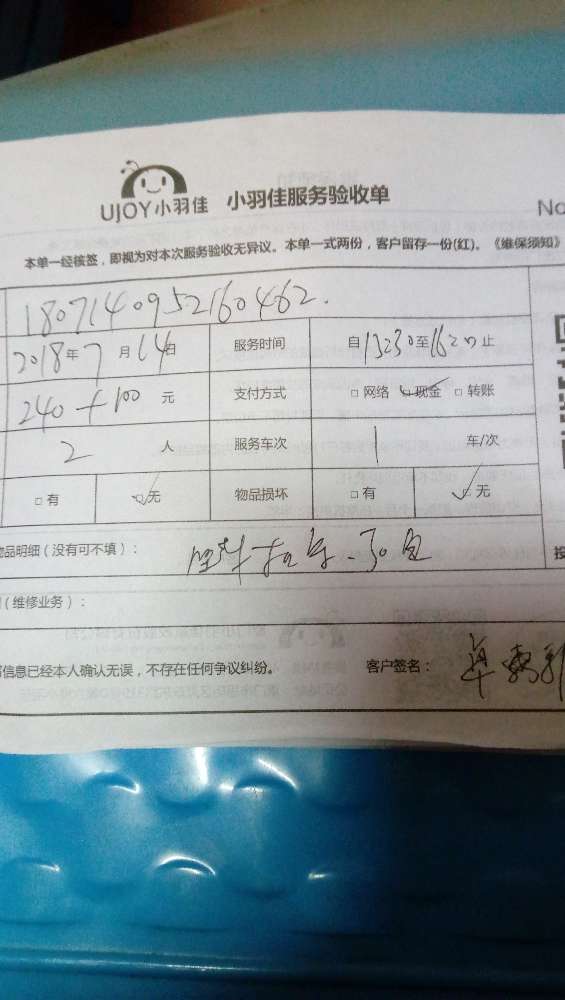 UJOY小羽佳 小羽佳服务验收单
No
本单一经核签，即视为对本次服务验收无异议。本单一式两份，客户留存一份(红)。《维保须知》
180714095260462.
2018年7月14日 服务时间 自13:30至16:20止
240+100元 支付方式 □网络 □现金 □转账
2人 服务车次 1车/次
□有 □无 物品损坏 □有 □无
物品明细（没有可不填）： 30包
（维修业务）：
信息已经本人确认无误，不存在任何争议纠纷。 客户签名：